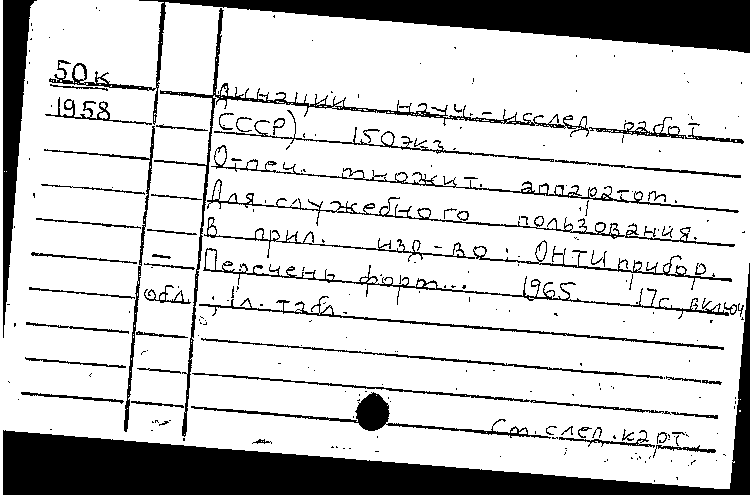 50к
1958
динации науч.-исслед. работ
СССР). 150экз.
Отпеч. множит. аппаратом.
Для служебного пользования.
В прил. изд-во: ОНТИприбор.
— Перечень форм... 1965. 17с., включ.
обл.; 1л. табл.
См. след. карт.